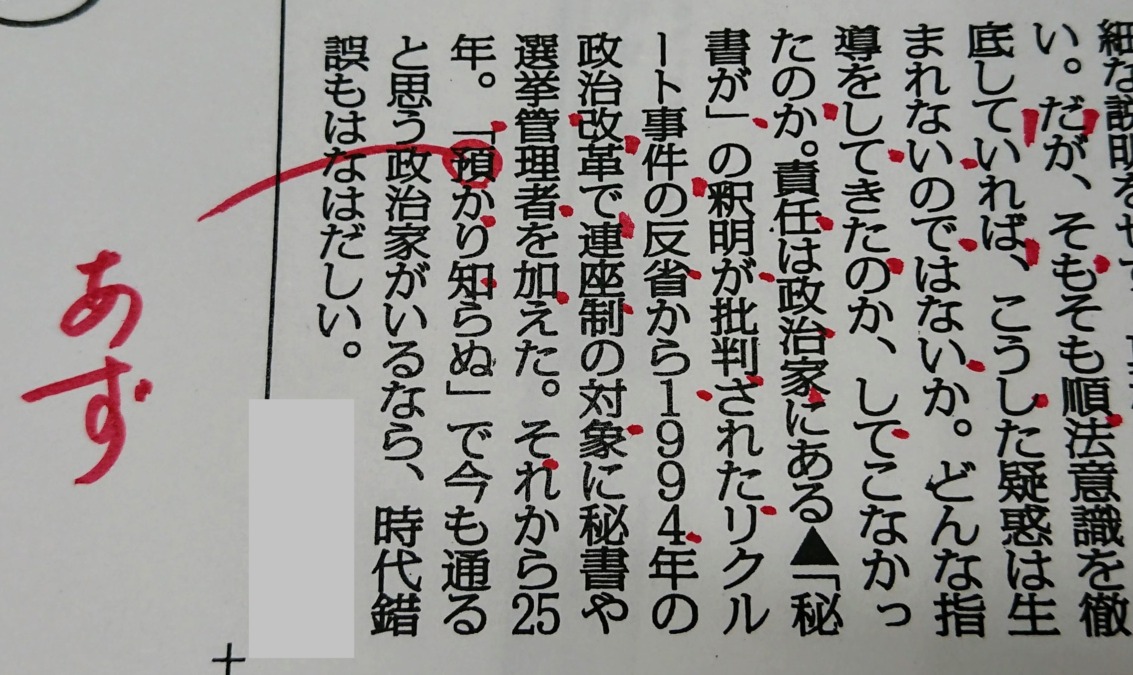 細な説明
い。だが、そもそも順法意識を徹
底していれば、こうした疑惑は生
まれないのではないか。どんな指
導をしてきたのか、してこなかっ
たのか。責任は政治家にある▲「秘
書が」の釈明が批判されたリクル
ート事件の反省から1994年の
政治改革で連座制の対象に秘書や
選挙管理者を加えた。それから25
年。「預かり知らぬ」で今も通る
と思う政治家がいるなら、時代錯
誤もはなはだしい。
あず